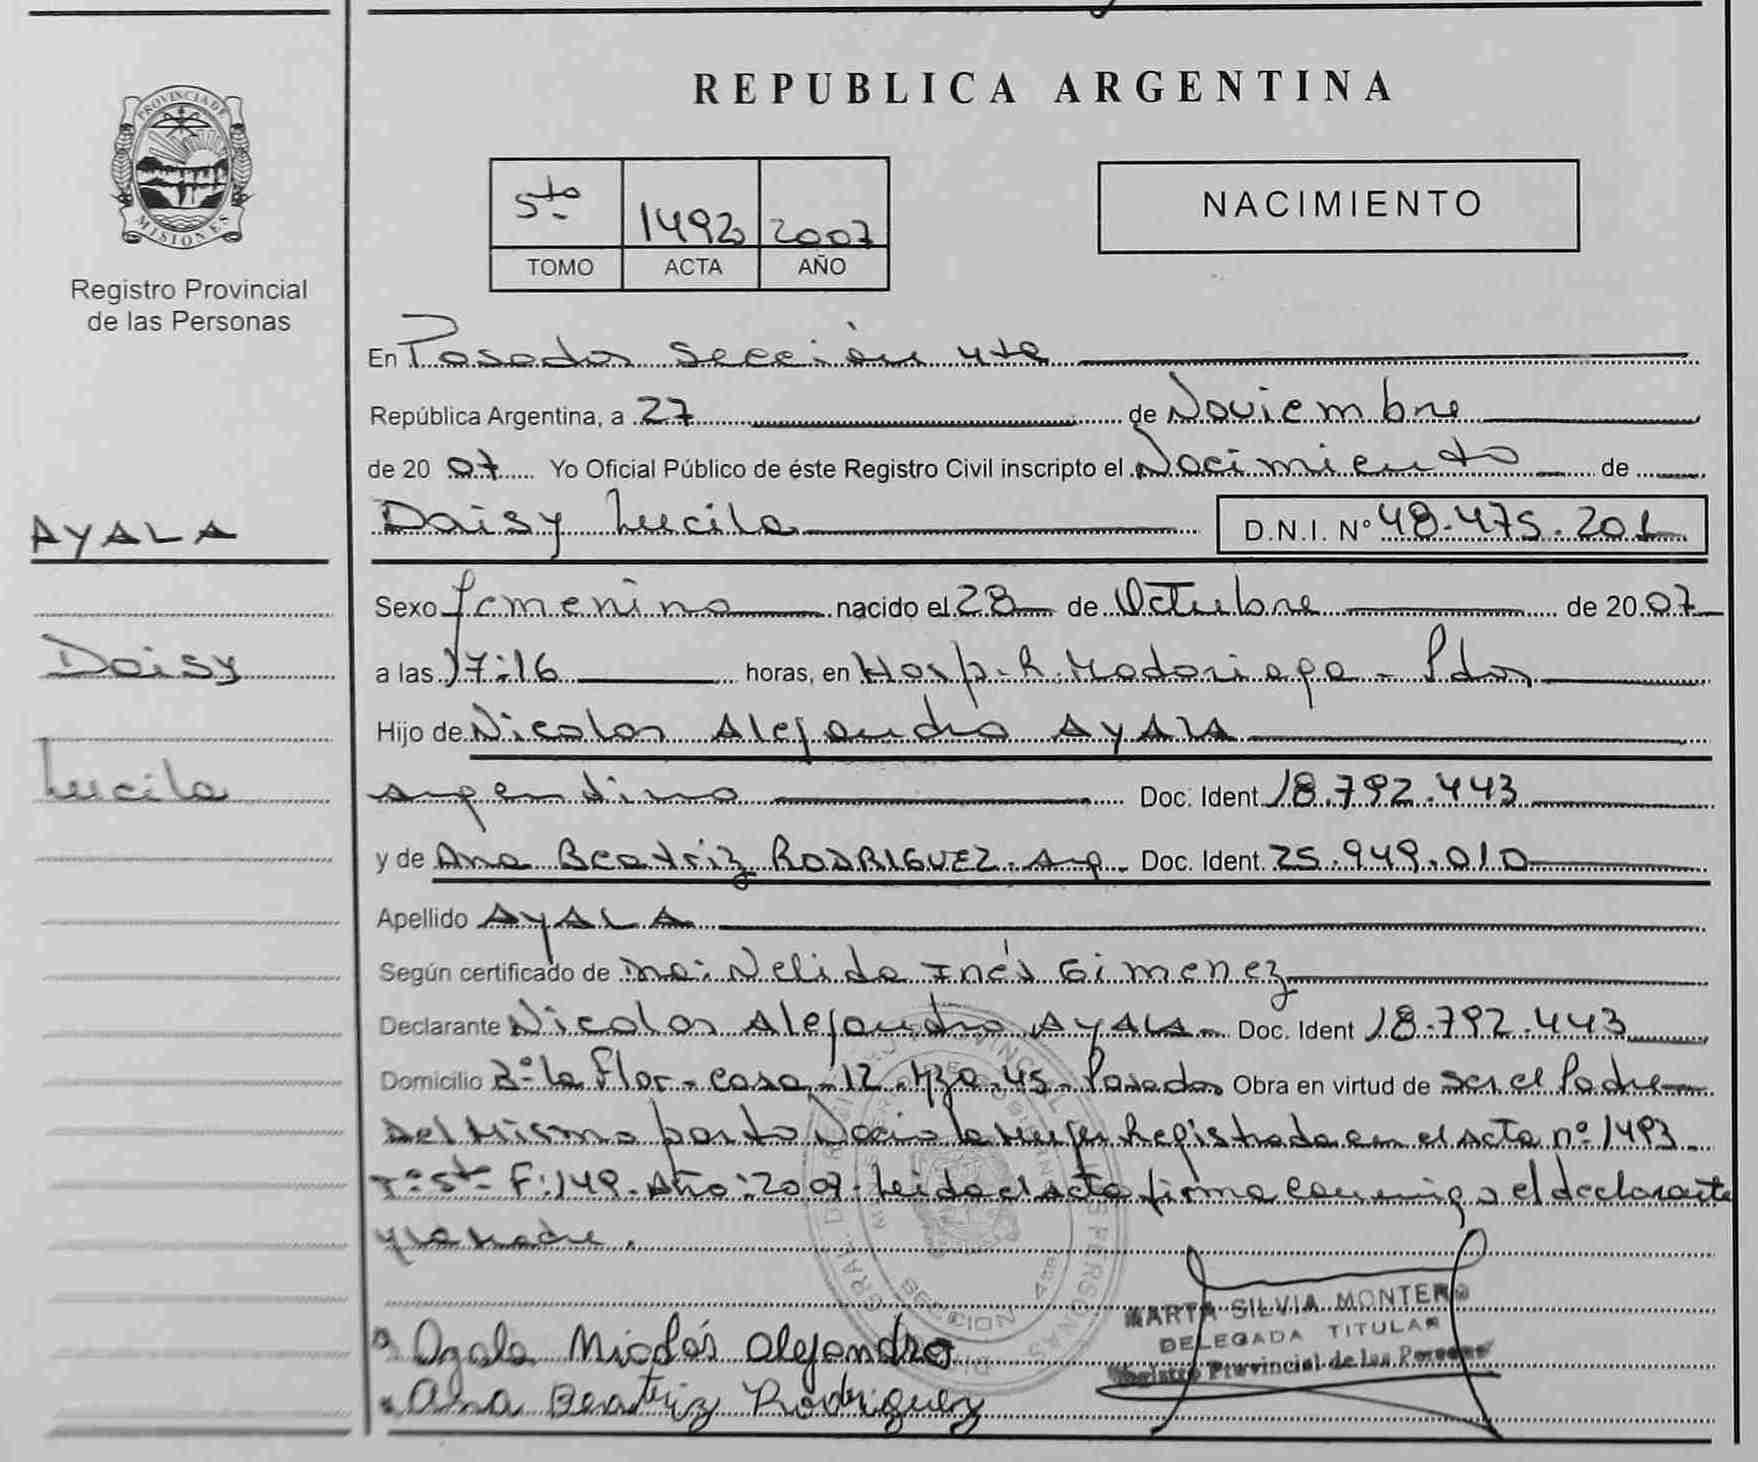 REPUBLICA ARGENTINA
PROVINCIA DE
MISIONES
Registro Provincial
de las Personas
5to 1492 2007
TOMO ACTA AÑO
NACIMIENTO
En Posadas Sección 4ta
República Argentina, a 27 de Noviembre
de 2007 Yo Oficial Público de éste Registro Civil inscripto el Nacimiento de
Daisy Lucila D.N.I. Nº 48.475.201
AYALA
Daisy
Lucila
Sexo femenino nacido el 28 de Octubre de 2007
a las 17:16 horas, en Hosp. R. Madariaga - Pdas
Hijo de Nicolas Alejandro AYALA
argentino Doc. Ident 18.792.443
y de Ana Beatriz RODRIGUEZ. Arg. Doc. Ident. 25.949.010
Apellido AYALA
Según certificado de Nelida Inés Gimenez
Declarante Nicolas Alejandro AYALA Doc. Ident 18.792.443
Domicilio Bº la Flor - casa - 12 - Mza. 45 - Posadas Obra en virtud de ser el Padre
Del Mismo parto Nacio la Mujer Registrada en el Acta nº 1493
Tº 5to F: 149. Año: 2007. Leida el acta firma conmigo el declarante
y la madre.
Ayala Nicolás Alejandro
Ana Beatriz Rodriguez
MARTA SILVIA MONTERO
DELEGADA TITULAR
Registro Provincial de las Personas